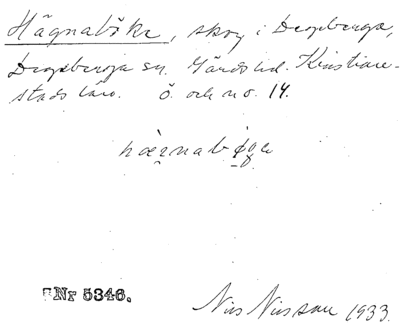 Hägnaböke, skog i Degeberga,
Degeberga sn. Gärds hd. Kristian-
stads län. Ö. och n. o. 14.
Nr 5346.
Nils Nilsson 1933.